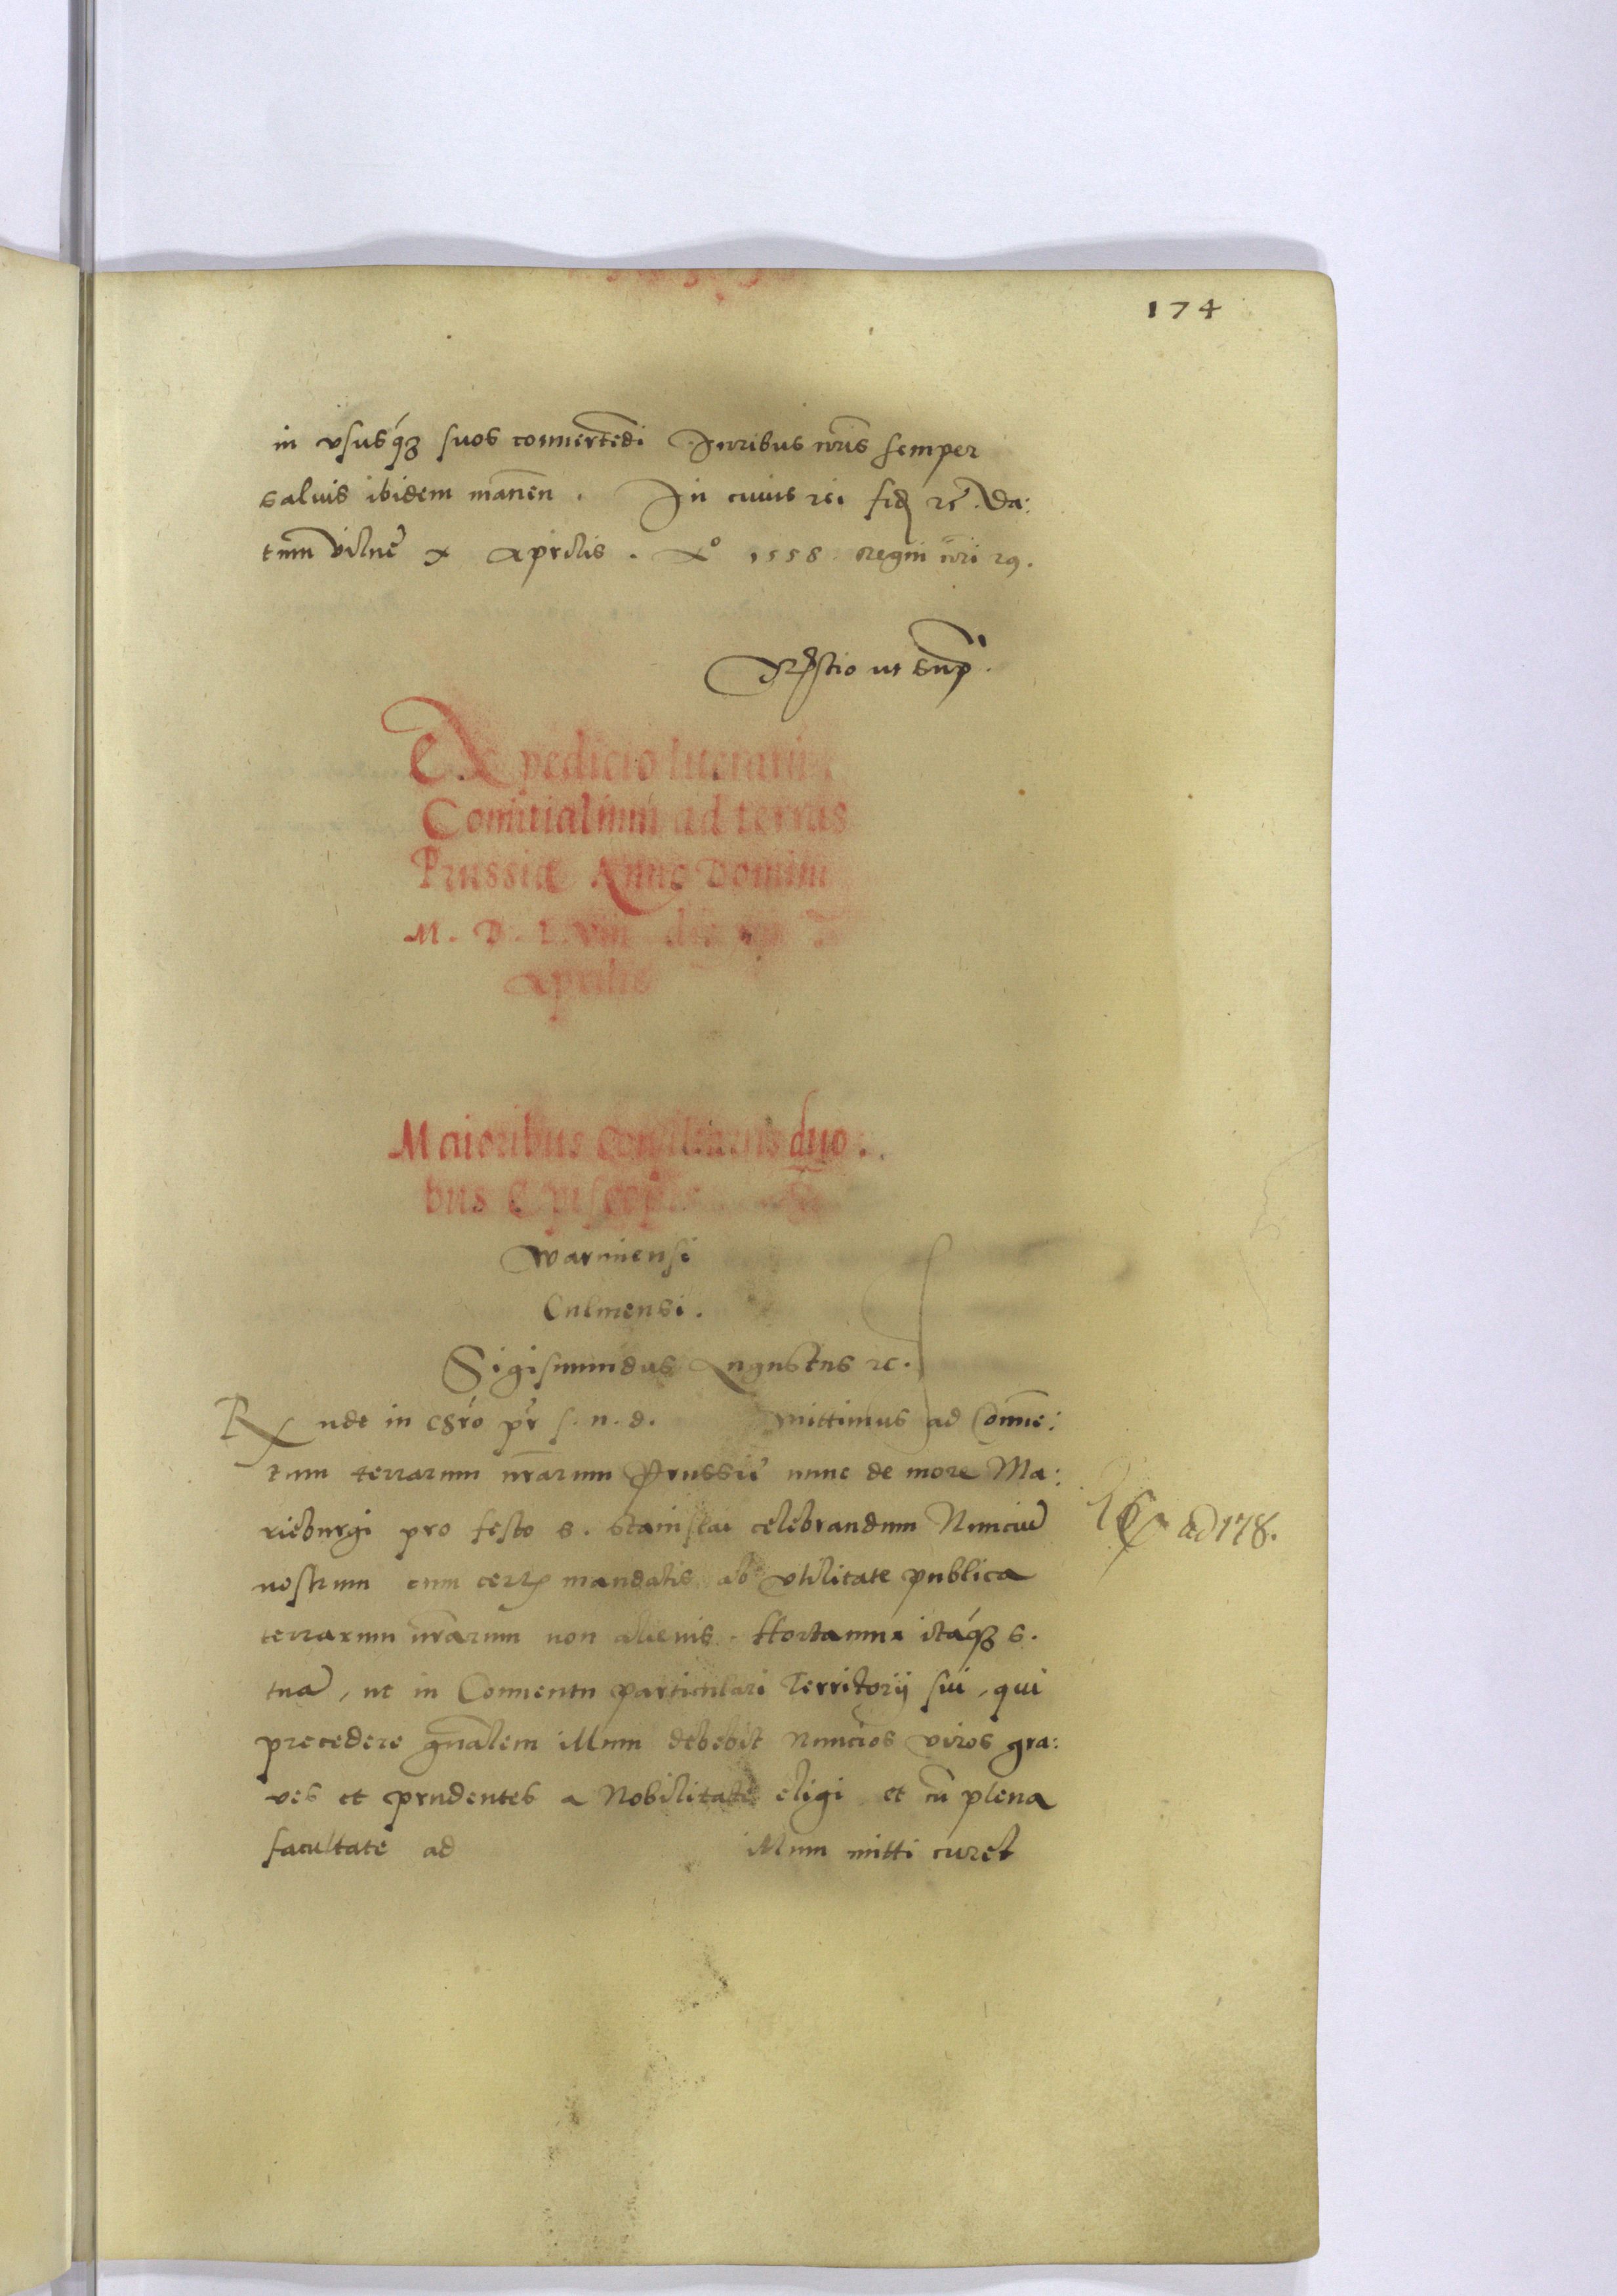 174
in vsusq́ꝫ suos conuertēdi Iuribus nr̄is semper
saluis ibidem manēn. In cuius rei fidē rc̄. Da:
tum Vilnē x Aprilis. Aº 1558 regni nr̄i 29.
ut sup̄.
Expedicio literarū
Comitialium ad terras
Prussiæ Anno Domini
M. D. L. VIII die
Aprilis
Maioribus Consiliariis duo:
bus Episcopis
Warmiensi
Culmensi.
Sigismundus Augustus rc.
Rnde in Chrō pr̄ s. n. d. mittimus ad Conuē:
tum terrarum nr̄arum Prussiē nunc de more Ma:
rieburgi pro festo S. Stanislai celebrandum Nunciū
nostrum cum certis mandatis ab vtilitate publica
terrarum nr̄arum non alienis. Hortamur itáqꝫ S.
tuā, ut in Conuentu particulari Territorij sui, qui
precedere gn̄alem illum debebit nuncios viros gra:
ves et prudentes a Nobilitate eligi et cū plena
facultate ad illum mitti curet
ad 178.